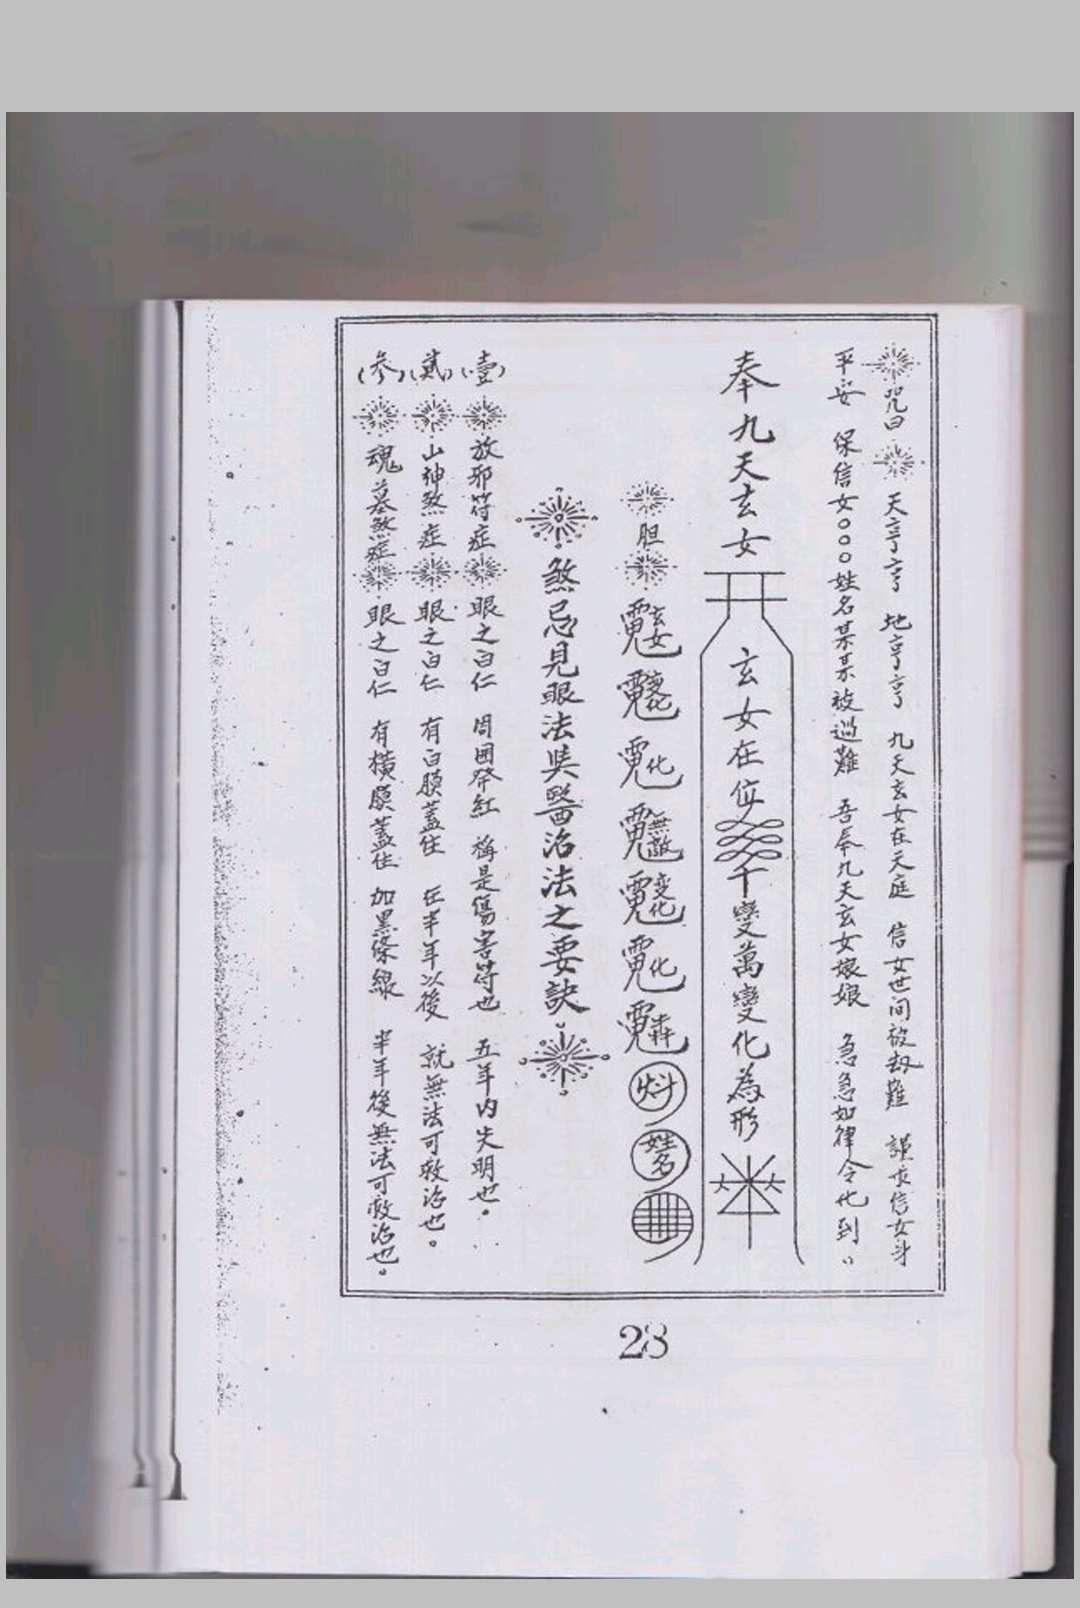 咒曰 天亨亨 地亨亨 九天玄女在天庭 信女世間被劫難 謹求信女斗
平安 保信女○○○姓名某某被過難 吾奉九天玄女娘娘 急急如律令化到
奉九天玄女 玄女在位 千變萬變化為形
胆 玄女 變化 化 無敵 变化 化 姓名
煞忌見眼法與醫治法之要訣
(壹) 放邪符症 眼之白仁 周圍發紅 稱是傷害符也 五年内失明也。
(貳) 山神煞症 眼之白仁 有白膜蓋住 在半年以後 就無法可救治也。
(参) 魂墓煞症 眼之白仁 有橫膜蓋住 加黑條線 半年後無法可救治也。
23